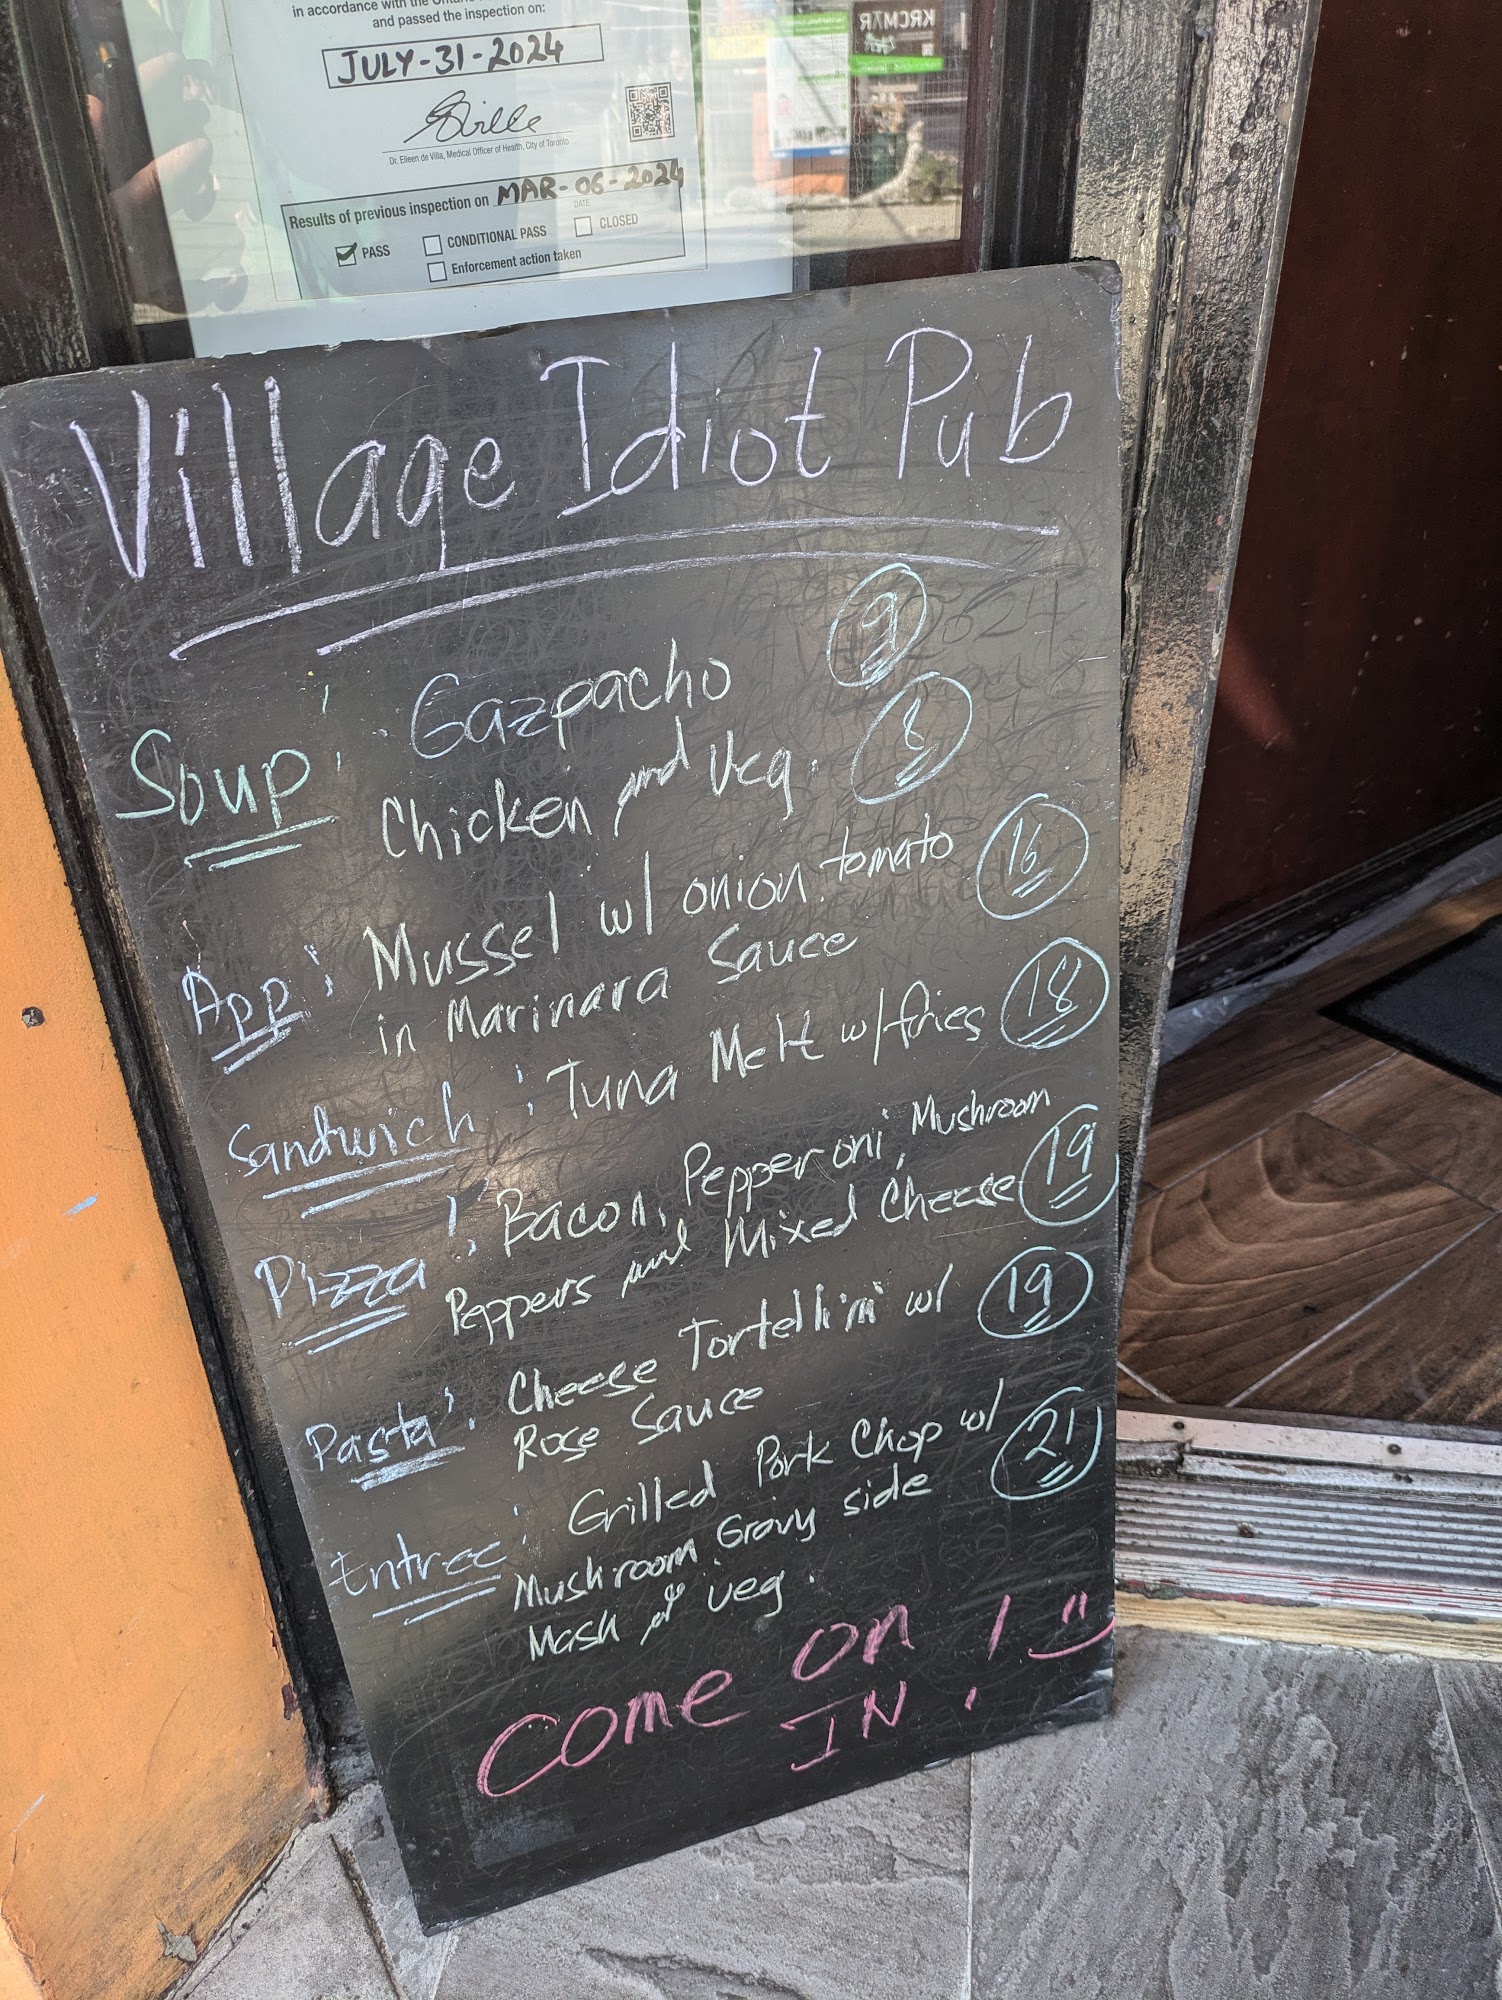 in accordance with the Ontario
and passed the inspection on:
JULY-31-2024
Dr. Eileen de Villa, Medical Officer of Health, City of Toronto
Results of previous inspection on MAR-06-2024
DATE
PASS CONDITIONAL PASS CLOSED
Enforcement action taken
KRCMAR
Village Idiot Pub
Soup: Gazpacho 9
Chicken and Veg. 8
App: Mussel w/ onion. tomato 16
in Marinara Sauce
Sandwich: Tuna Melt w/fries 18
Pizza: Bacon, Pepperoni, Mushroom
Peppers and Mixed Cheese 19
Pasta: Cheese Tortellini w/ 19
Rose Sauce
Entree: Grilled Pork Chop w/ 21
Mushroom Gravy side
Mash & veg.
COME ON !
IN !